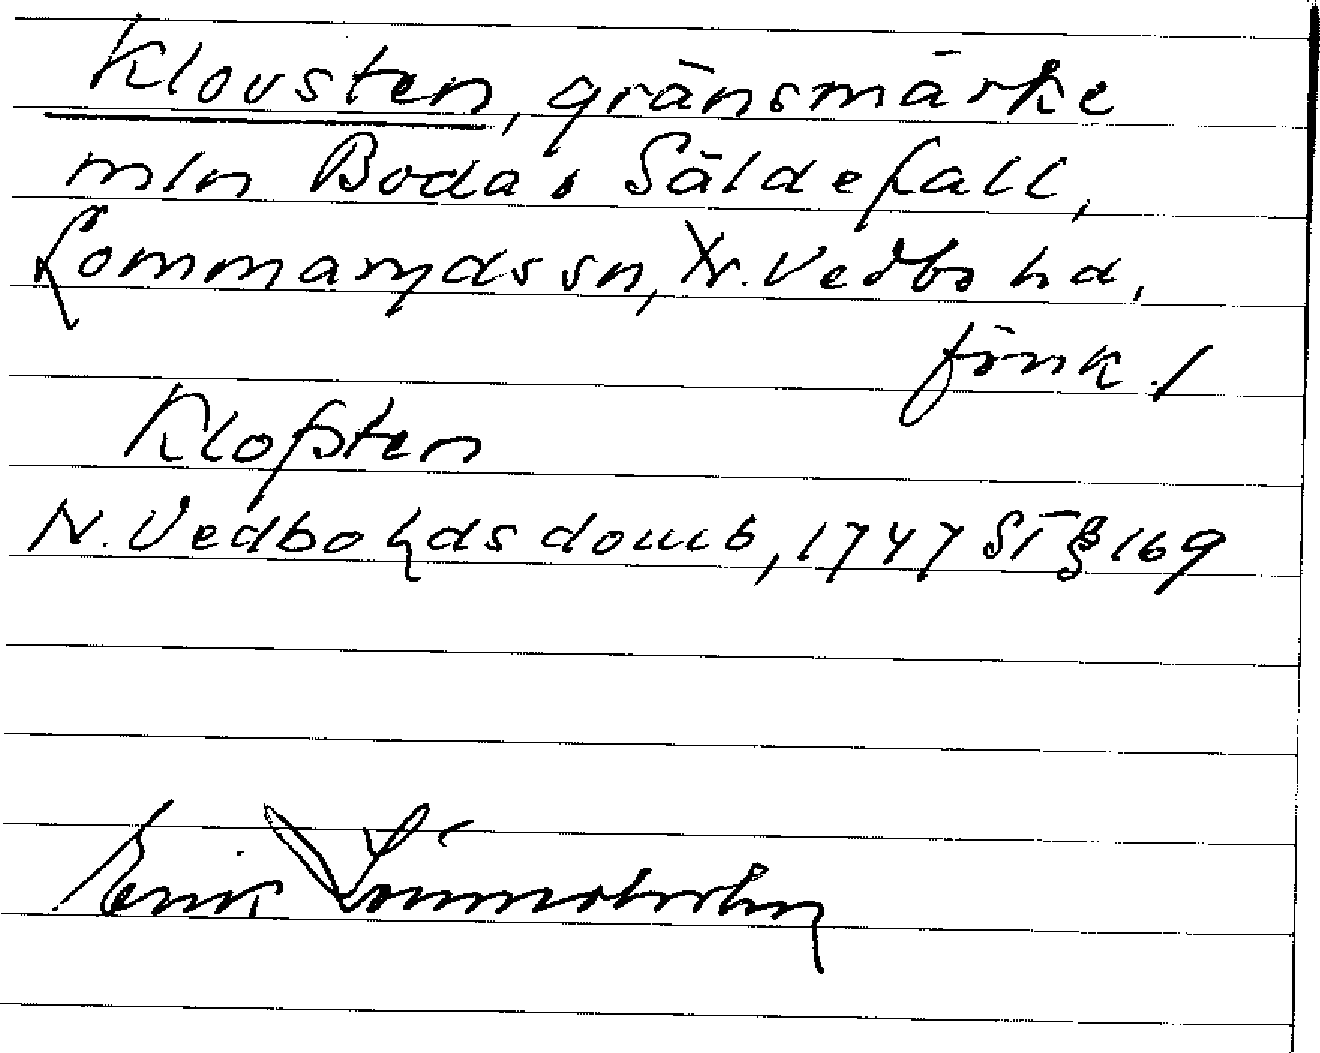 Klovsten, gränsmärke
mln Boda o Säldefall,
Lommaryds sn, N. Vedbo hd,
försv.!
Klofsten
N. Vedbo hds domb, 1747 ST § 169
Erik